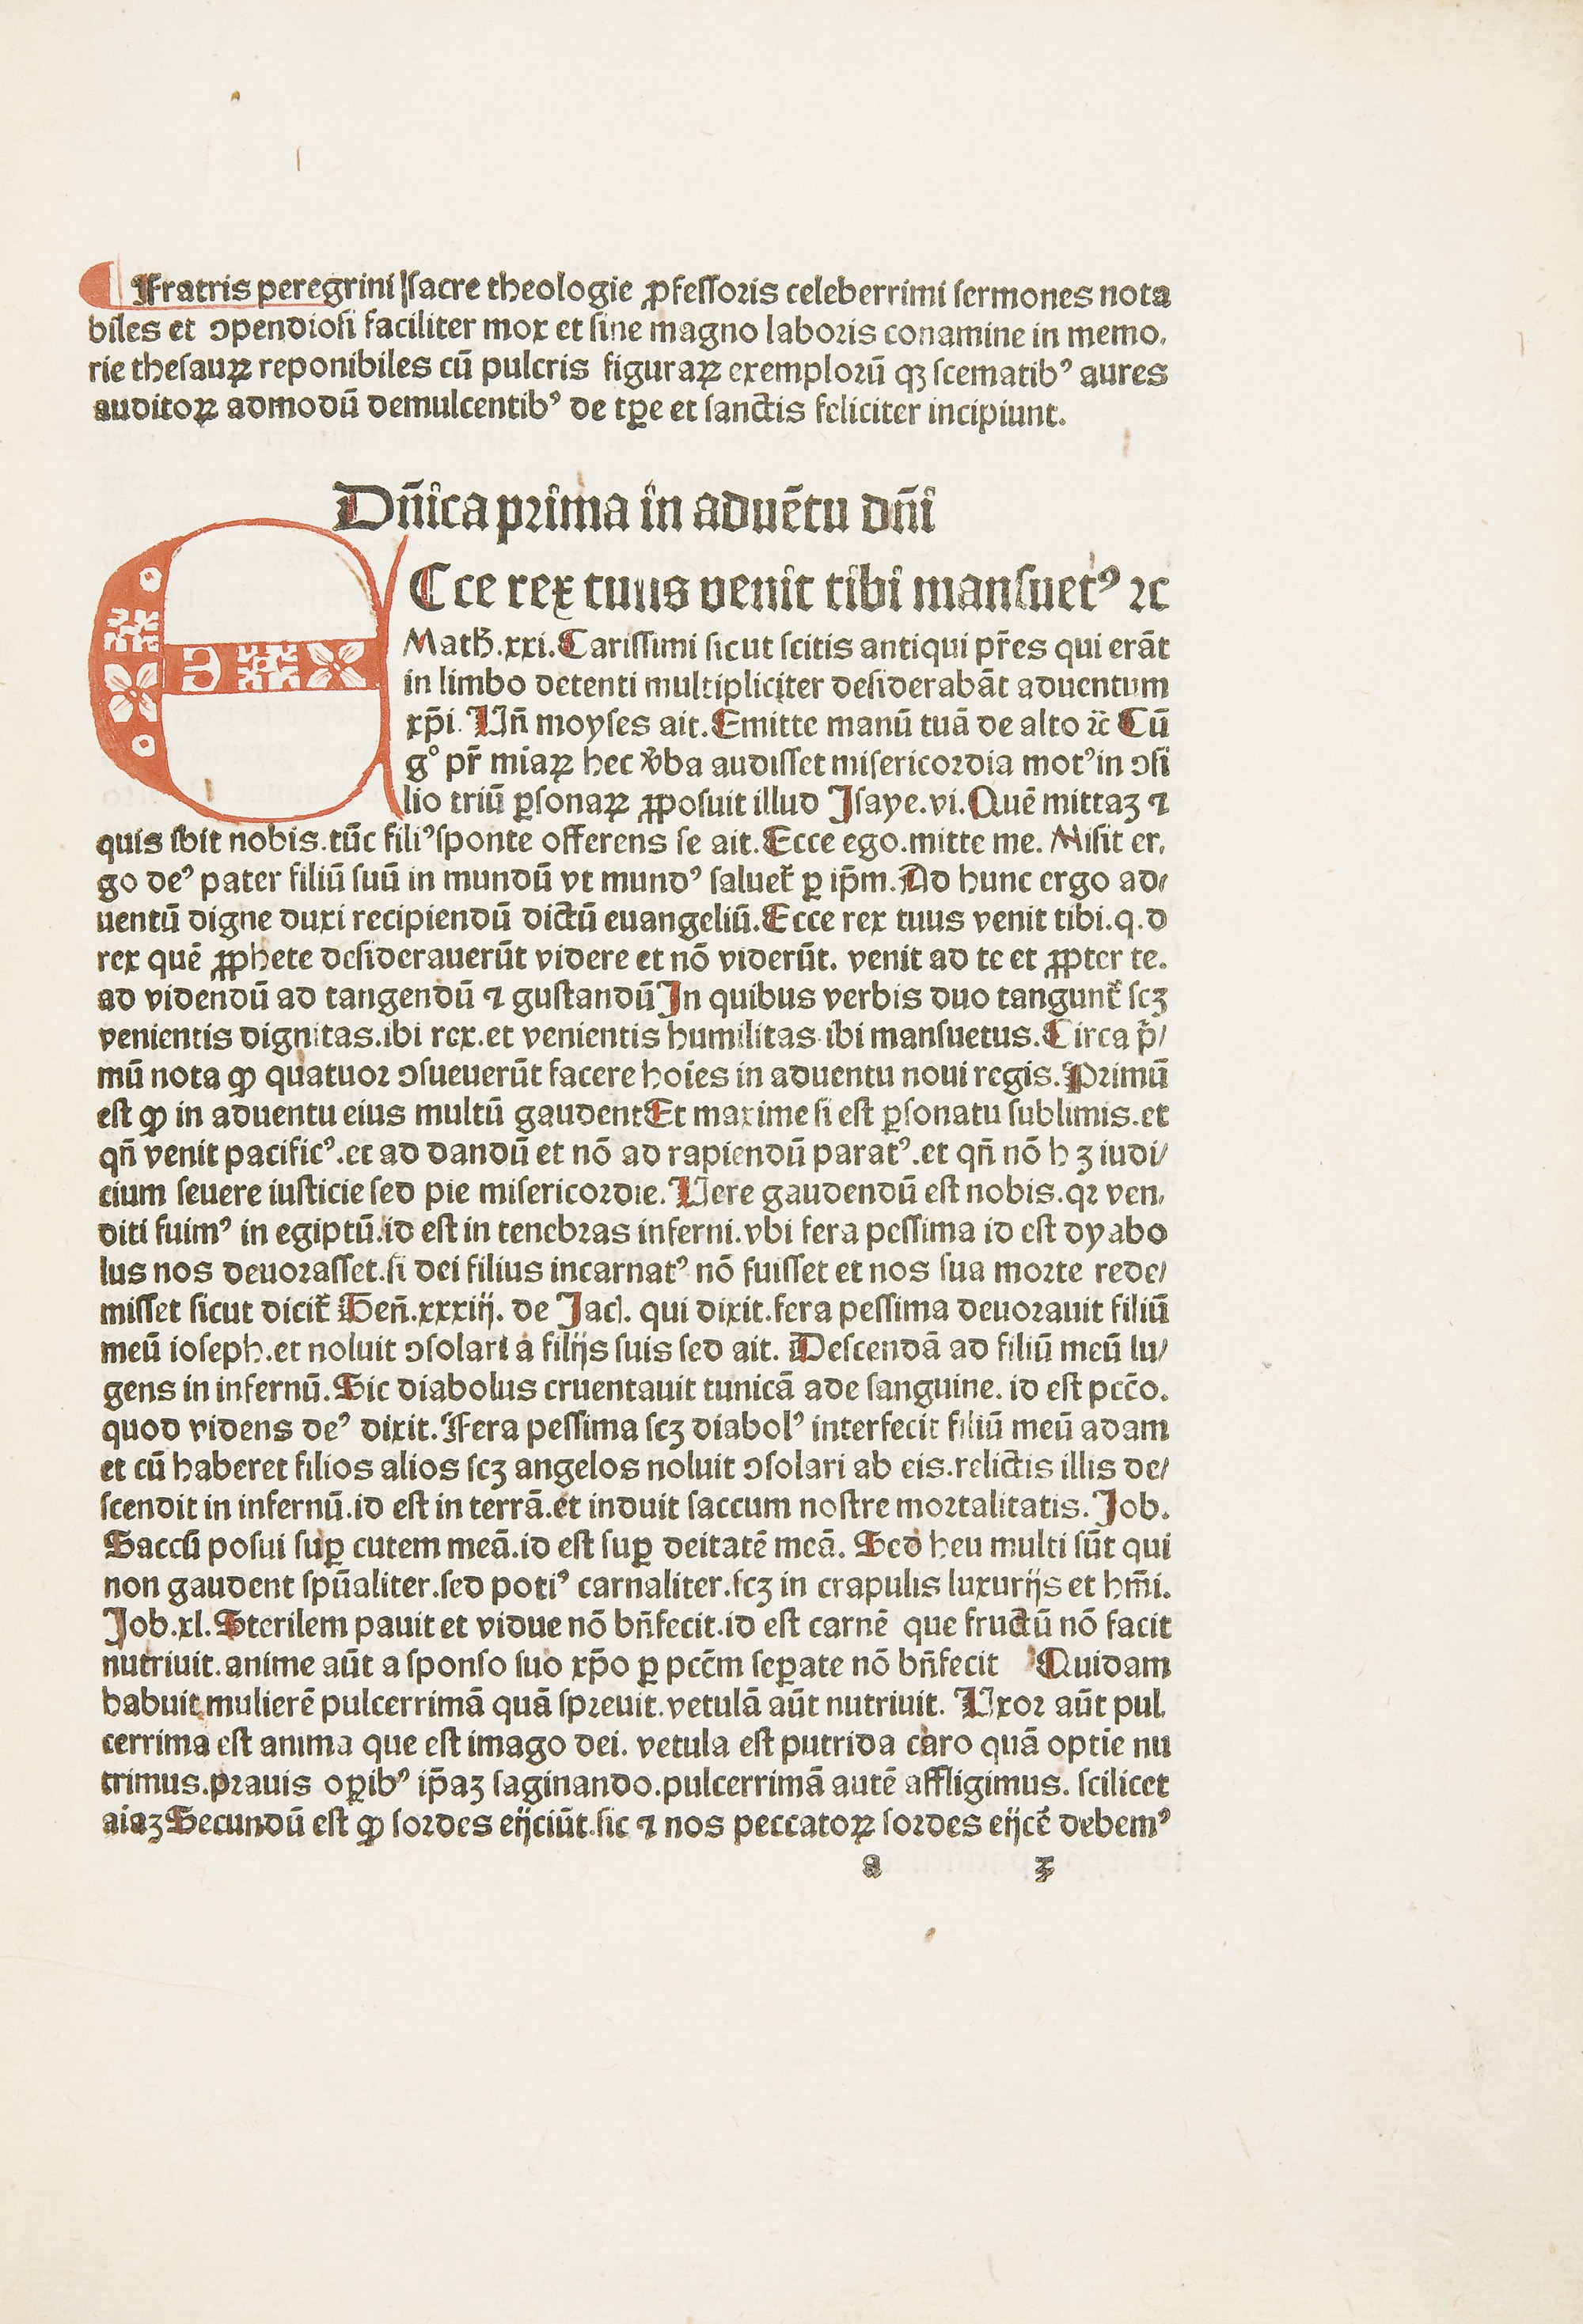 Fratris peregrini sacre theologie ꝓfessoris celeberrimi sermones nota
biles et ↄpendiosi faciliter mox et sine magno laboris conamine in memo,
rie thesauꝝ reponibiles cū pulcris figuraꝝ exemplorū qꝫ scematibꝰ aures
auditoꝝ admodū demulcentibꝰ de tꝑe et sanctis feliciter incipiunt.
Dn̄ica prima in aduētu dn̄i
ECce rex tuus venit tibi mansuetꝰ ⁊c
Math̄.xxi.Carissimi sicut scitis antiqui pr̄es qui erāt
in limbo detenti multipliciter desiderabāt aduentum
xp̄i. Un̄ moyses ait.Emitte manū tuā de alto ⁊c̄ Cū
gͦ pr̄ miaꝝ hec v̄ba audisset misericordia motꝰ in ↄsi
lio triū ꝑsonaꝝ ꝓposuit illud Isaye.vi.Quē mittaꝫ ⁊
quis ibit nobis.tūc filiꝰ sponte offerens se ait.Ecce ego.mitte me. Misit er,
go deꝰ pater filiū suū in mundū vt mundꝰ saluet̄ ꝑ ip̄m.Ad hunc ergo ad/
uentū digne duxi recipiendū dictū euangeliū.Ecce rex tuus venit tibi.q.d
rex quē ꝓphete desiderauerūt videre et nō viderūt. venit ad te et ꝓpter te.
ad videndū ad tangendū ⁊ gustandū In quibus verbis duo tangunt̄ scꝫ
venientis dignitas.ibi rex.et venientis humilitas ibi mansuetus.Circa p̄/
mū nota ꝙ quatuor ↄsueuerūt facere hoīes in aduentu noui regis.Primū
est ꝙ in aduentu eius multū gaudent Et maxime si est ꝑsonatu sublimis.et
qn̄ venit pacificꝰ.et ad dandū et nō ad rapiendū paratꝰ.et qn̄ nō hꝫ iudi/
cium seuere iusticie sed pie misericordie.Vere gaudendū est nobis.qꝛ ven,
diti fuimꝰ in egiptū.id est in tenebras inferni.vbi fera pessima id est dyabo
lus nos deuorasset.si dei filius incarnatꝰ nō fuisset et nos sua morte rede/
misset sicut dicit̄ Gen̄.xxxiij. de Jacl. qui dixit.fera pessima deuorauit filiū
meū ioseph.et noluit ↄsolari a filijs suis sed ait. Descendā ad filiū meū lu/
gens in infernū.Sic diabolus cruentauit tunicā ade sanguine. id est pcc̄o.
quod videns deꝰ dixit.Fera pessima scꝫ diabolꝰ interfecit filiū meū adam
et cū haberet filios alios scꝫ angelos noluit ↄsolari ab eis.relictis illis de/
scendit in infernū.id est in terrā.et induit saccum nostre mortalitatis. Job.
Saccū posui suꝑ cutem meā.id est suꝑ deitatē meā. Sed heu multi sūt qui
non gaudent spūaliter.sed potiꝰ carnaliter.scꝫ in crapulis luxurijs et hm̄i.
Job.xl.Sterilem pauit et vidue nō bn̄fecit.id est carnē que fructū nō facit
nutriuit.anime aūt a sponso suo xp̄o ꝑ pcc̄m seꝑate nō bn̄fecit Quidam
habuit mulierē pulcerrimā quā spreuit.vetulā aūt nutriuit. Uxor aūt pul
cerrima est anima que est imago dei. vetula est putrida caro quā optie nu
trimus.prauis oꝑibꝰ ip̄aꝫ saginando.pulcerrimā autē affligimus. scilicet
aiaꝫ Secundū est ꝙ sordes eijciūt.sic ⁊ nos peccatoꝝ sordes eijcē debemꝰ
a